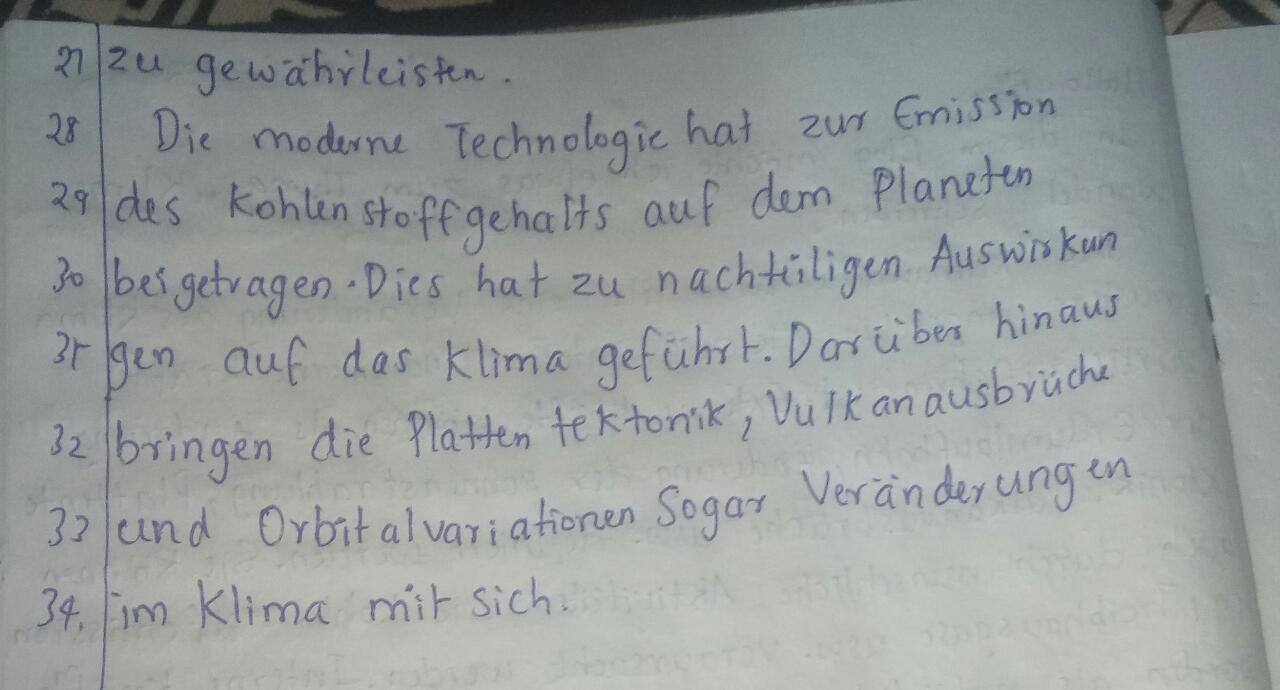 27 zu gewährleisten.
28 Die moderne Technologie hat zur Emission
29 des Kohlenstoffgehalts auf dem Planeten
30 beigetragen. Dies hat zu nachteiligen Auswirkun
31 gen auf das Klima geführt. Darüber hinaus
32 bringen die Plattentektonik, Vulkanausbrüche
33 und Orbitalvariationen Sogar Veränderungen
34. im Klima mit sich.